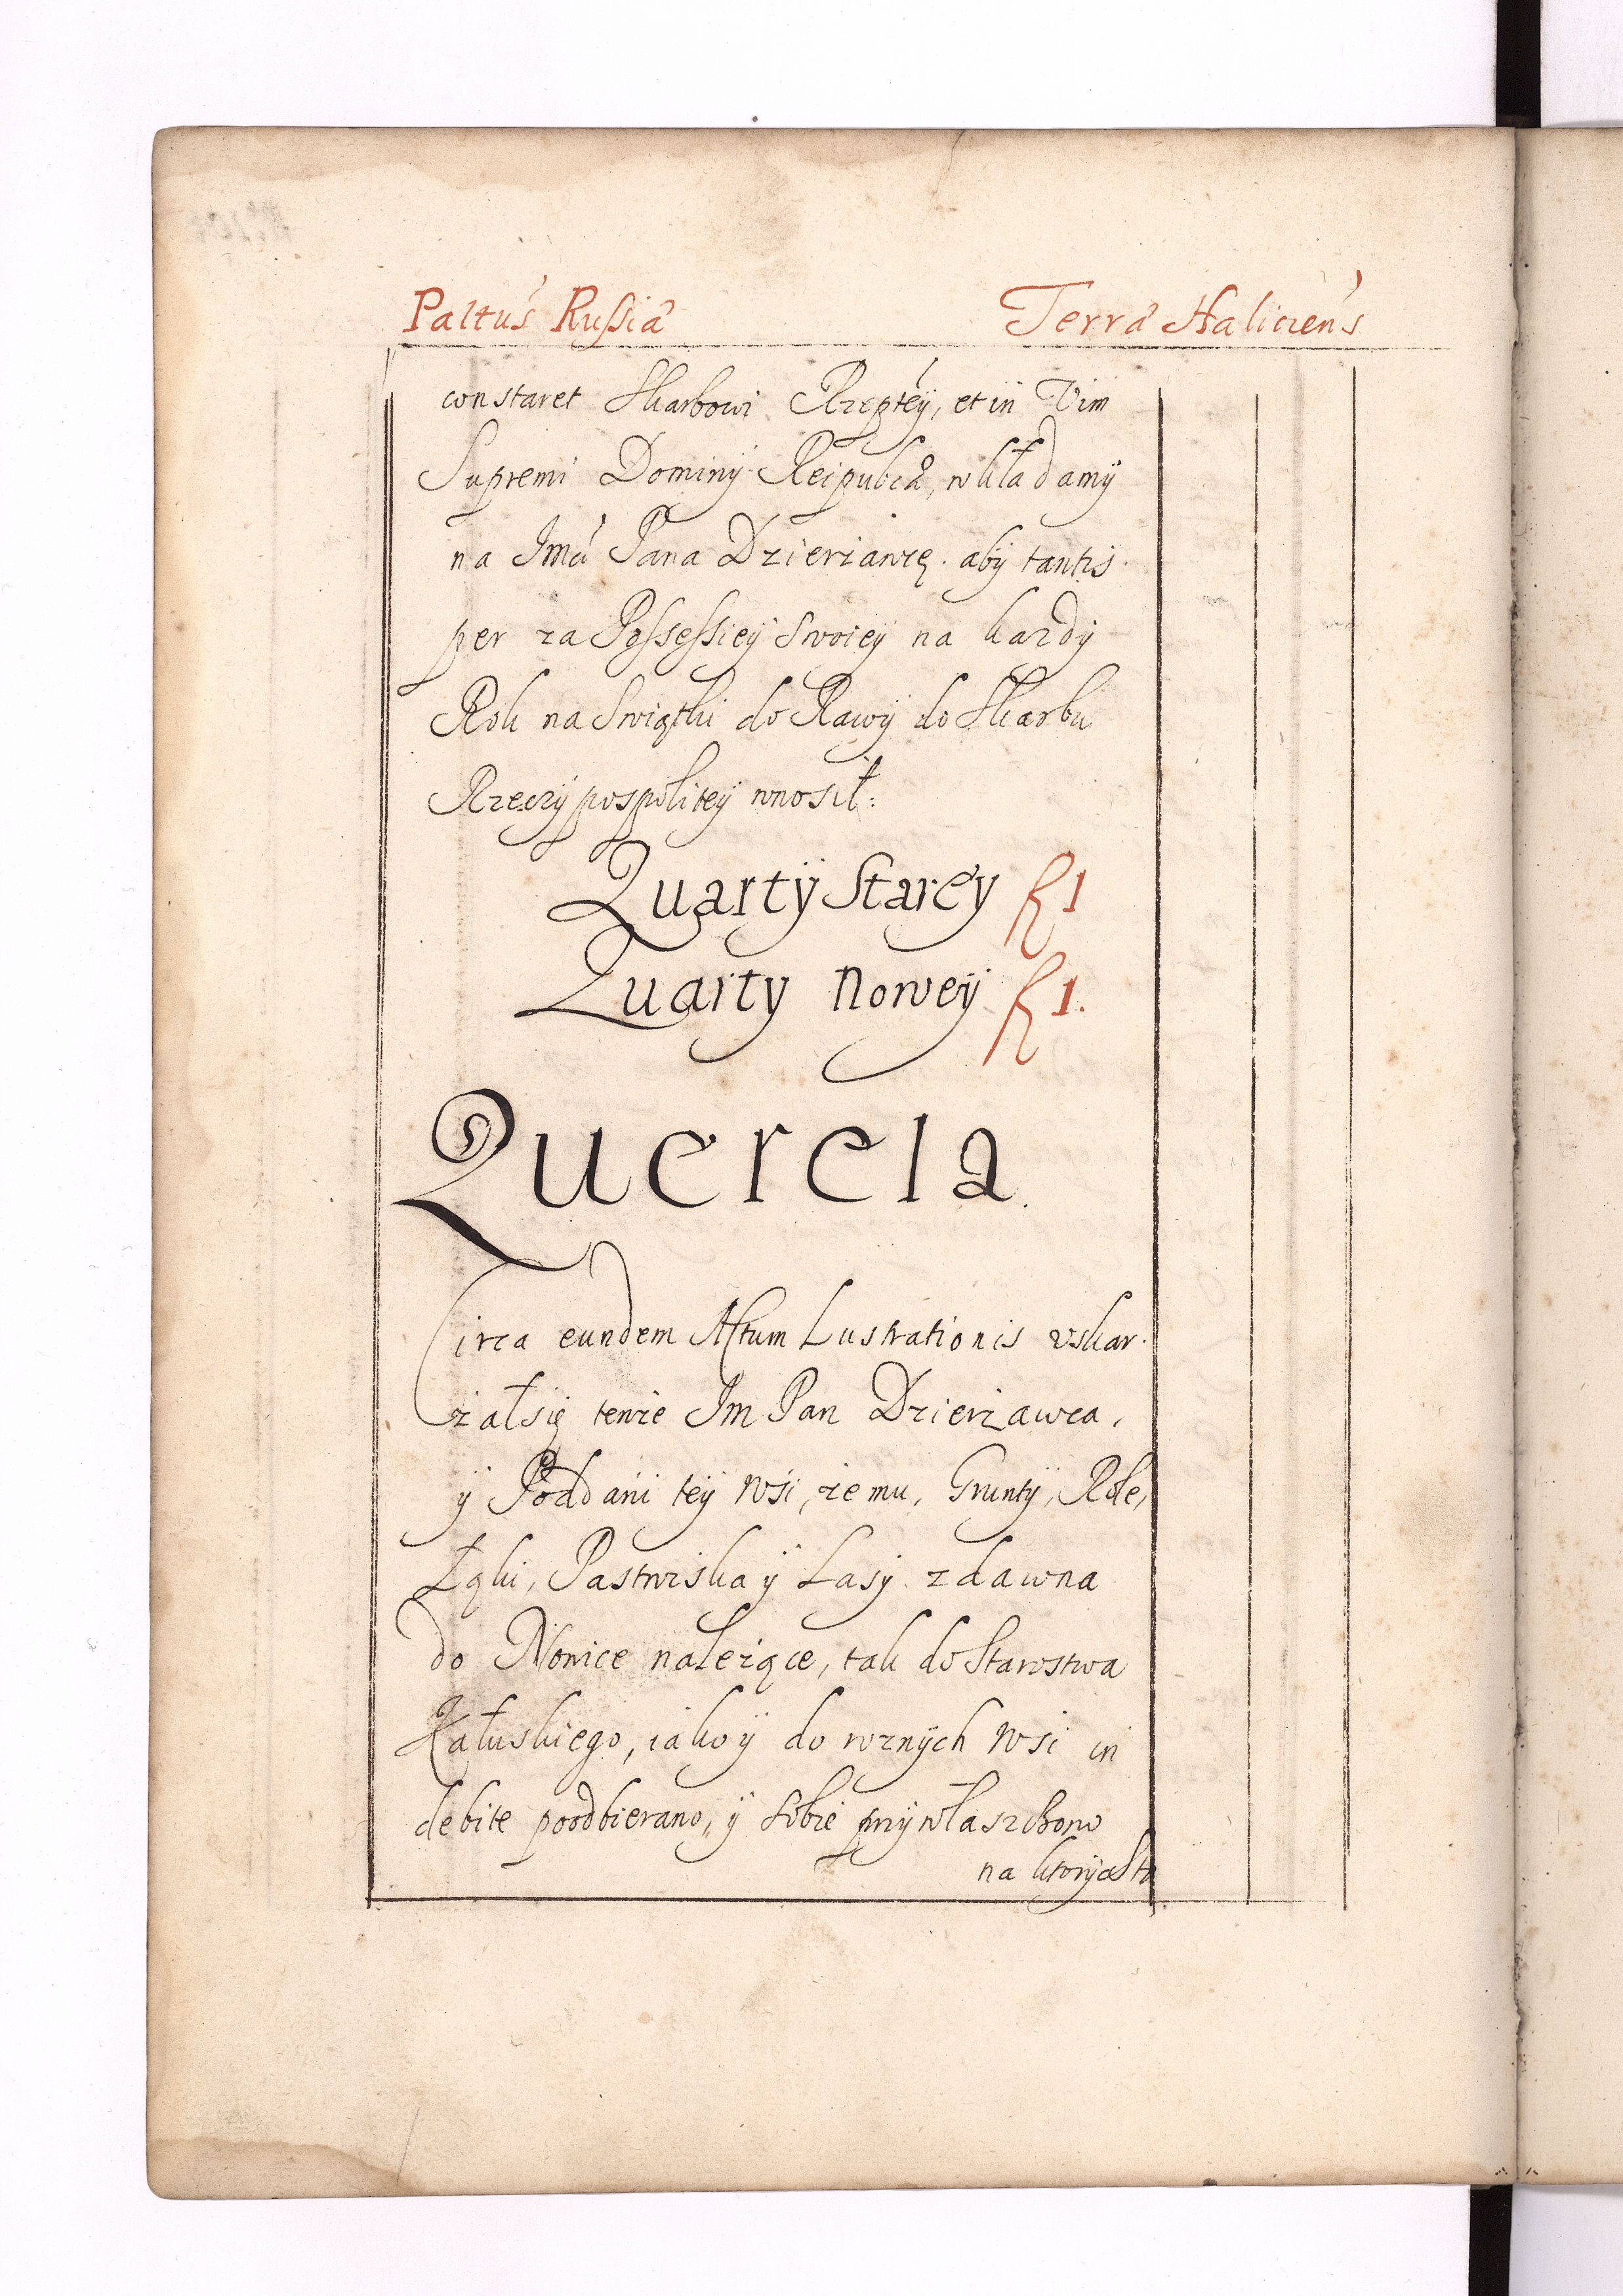 Paltus Russiæ Terræ Haliciens
constaret Skarbowi Rzeptey, et in Vim
Supremi Dominÿ Reipublcæ, wkładamÿ
na Jmći Pana Dzierżawcę. abÿ tantis
per za Possessieÿ Swoieÿ na każdÿ
Rok na Swiątki do Rawÿ do Skarbu
Rzeczÿpospoliteÿ wnosił:
Quartÿ Starey fl 1
Quarty Noweÿ fl 1.
Querela.
Circa eundem Actum Lustrationis uskar-
żał się tenże Jm Pan Dzierżawca,
ÿ Poddani teÿ Wsi, że mu, Gruntÿ, Role,
Łąki, Pastwiska ÿ Lasÿ zdawna
do Nowice należące, tak do Starostwa
Kałuskiego, iako ÿ do roznÿch Wsi in
debite poodbierano, ÿ sobie przÿwłaszczono
na ktorÿch to